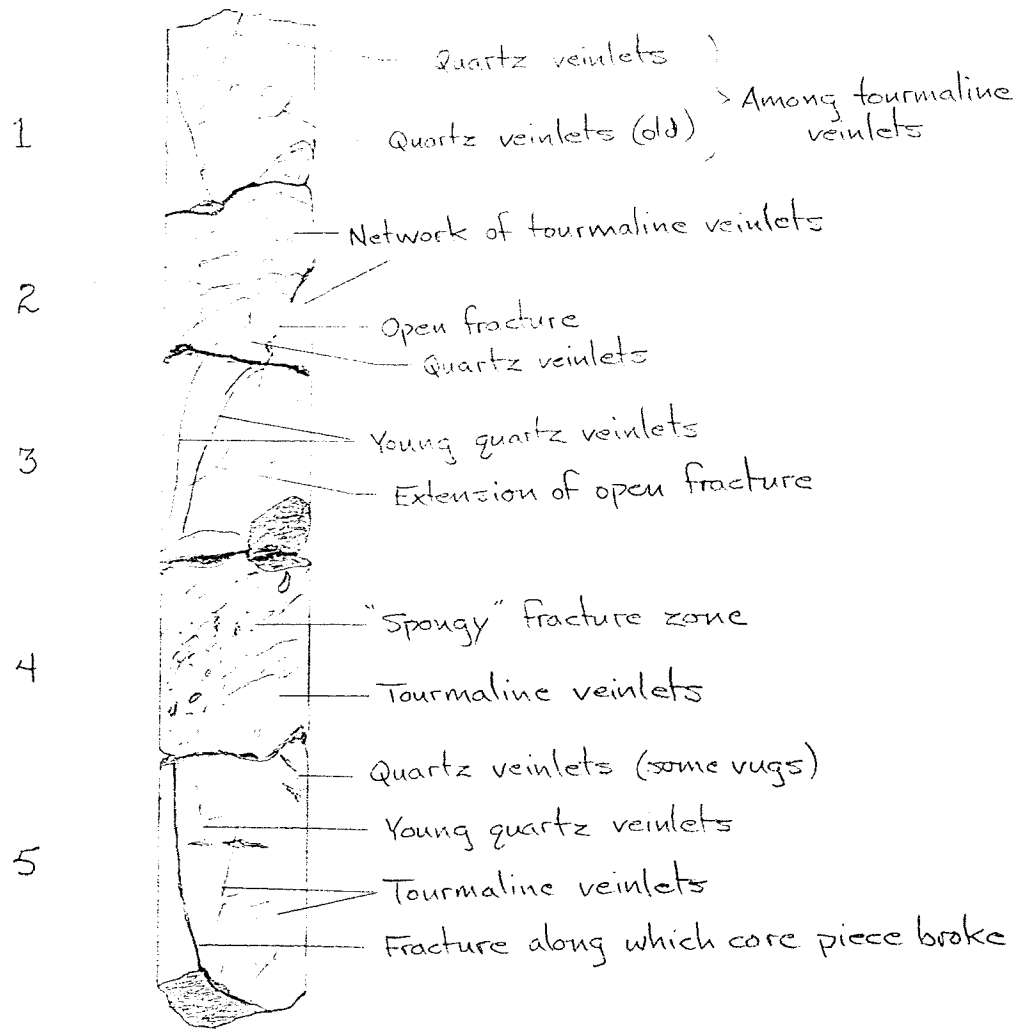 1
Quartz veinlets
Quartz veinlets (old)
Among tourmaline
veinlets
2
Network of tourmaline veinlets
Open fracture
Quartz veinlets
3
Young quartz veinlets
Extension of open fracture
4
"Spongy" fracture zone
Tourmaline veinlets
5
Quartz veinlets (some vugs)
Young quartz veinlets
Tourmaline veinlets
Fracture along which core piece broke